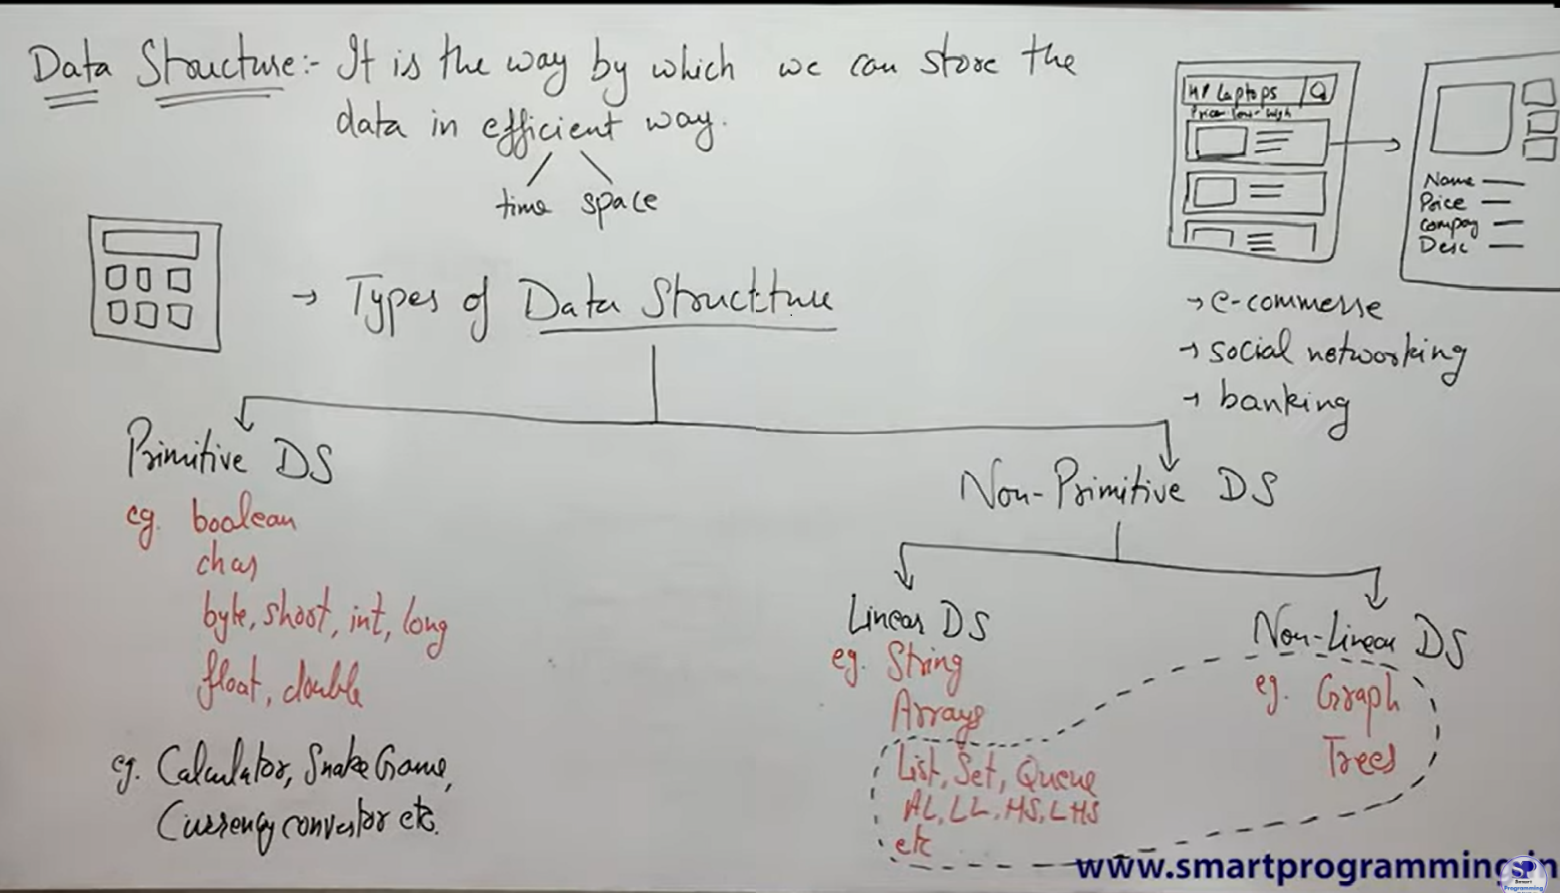 Data Structure:- It is the way by which we can store the
data in efficient way.
time space
HP Laptops
Price low-high
Name
Price
Company
Desc
→ e-commerse
→ social networking
→ banking
→ Types of Data Structture
Primitive DS
eg. boolean
char
byte, short, int, long
float, double
eg. Calculator, Snake Game,
Currency convertor etc.
Non-Primitive DS
Linear DS
eg. String
Arrays
List, Set, Queue
AL, LL, HS, LHS
etc
Non-Linear DS
eg. Graph
Trees
www.smartprogramming.in
SP
Smart
Programming